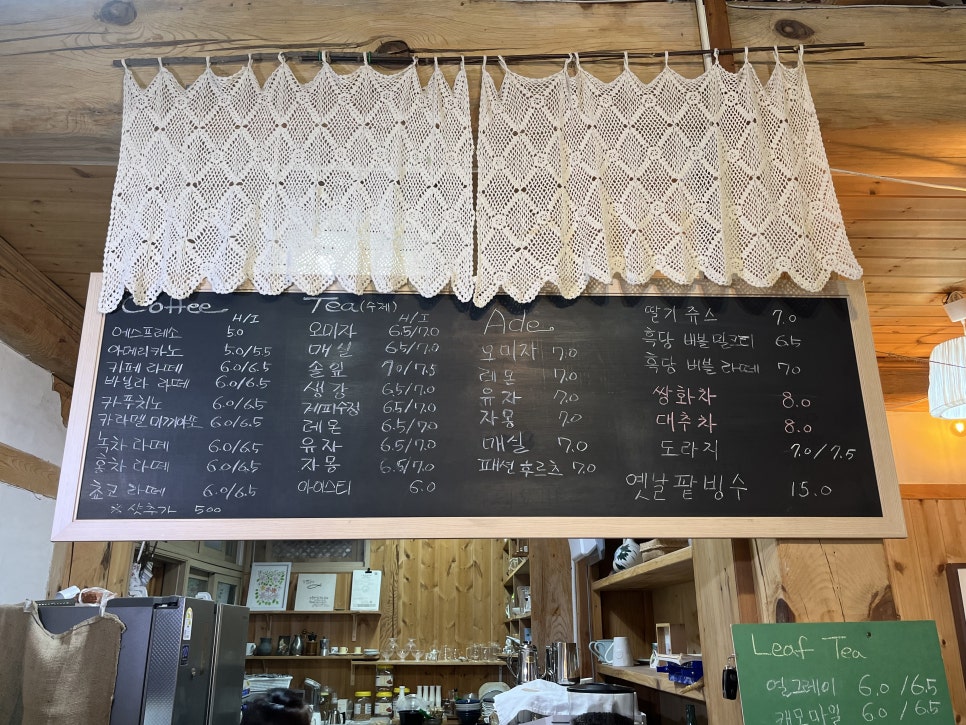 Coffee
H/I
에스프레소 5.0
아메리카노 5.0/5.5
카페 라떼 6.0/6.5
바닐라 라떼 6.0/6.5
카푸치노 6.0/6.5
카라멜 마끼아또 6.0/6.5
녹차 라떼 6.0/6.5
홍차 라떼 6.0/6.5
쵸코 라떼 6.0/6.5
※ 샷추가 500
Tea(수제)
H/I
오미자 6.5/7.0
매실 6.5/7.0
솔잎 7.0/7.5
생강 6.5/7.0
계피수정 6.5/7.0
레몬 6.5/7.0
유자 6.5/7.0
자몽 6.5/7.0
아이스티 6.0
Ade
오미자 7.0
레몬 7.0
유자 7.0
자몽 7.0
매실 7.0
패션후르츠 7.0
딸기 쥬스 7.0
흑당 버블밀크티 6.5
흑당 버블 라떼 7.0
쌍화차 8.0
대추차 8.0
도라지 7.0/7.5
옛날 팥빙수 15.0
Leaf Tea
얼그레이 6.0/6.5
캐모마일 6.0/6.5